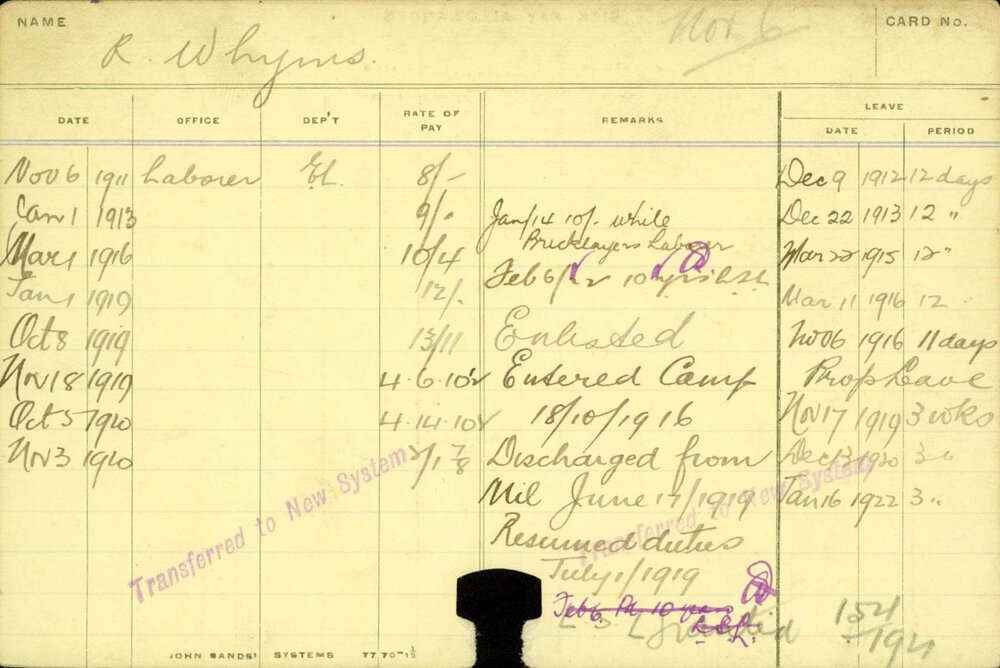 NAME
R. Whyms.
Nov 6
CARD No.
DATE OFFICE DEP'T RATE OF PAY REMARKS LEAVE
DATE PERIOD
Nov 6 1911 Laborer El. 8/- Dec 9 1912 12 days
Jan 1 1913 9/- Jan/14 10/. while Dec 22 1913 12 "
Bricklayers Laborer
Mar 1 1916 10/4 Mar 22 1915 12 "
Feb 6/ 10 yrs
Jan 1 1919 12/. Mar 11 1916 12
Oct 8 1919 13/11 Enlisted Nov 6 1916 11 days
Nov 18 1919 4.6.10½ Entered Camp Prop Leave
Oct 5 1920 4.14.10½ 18/10/1916 Nov 17 1919 3 wks
Nov 3 1920 2/1 7/8 Discharged from Dec 13 1920 3 "
Mil June 17/1919 Jan 16 1922 3 "
Transferred to New System
Transferred to New System
Resumed duties
July 1/1919
Feb 6. 10 yrs
L S L granted
JOHN SANDS' SYSTEMS 7770-1½